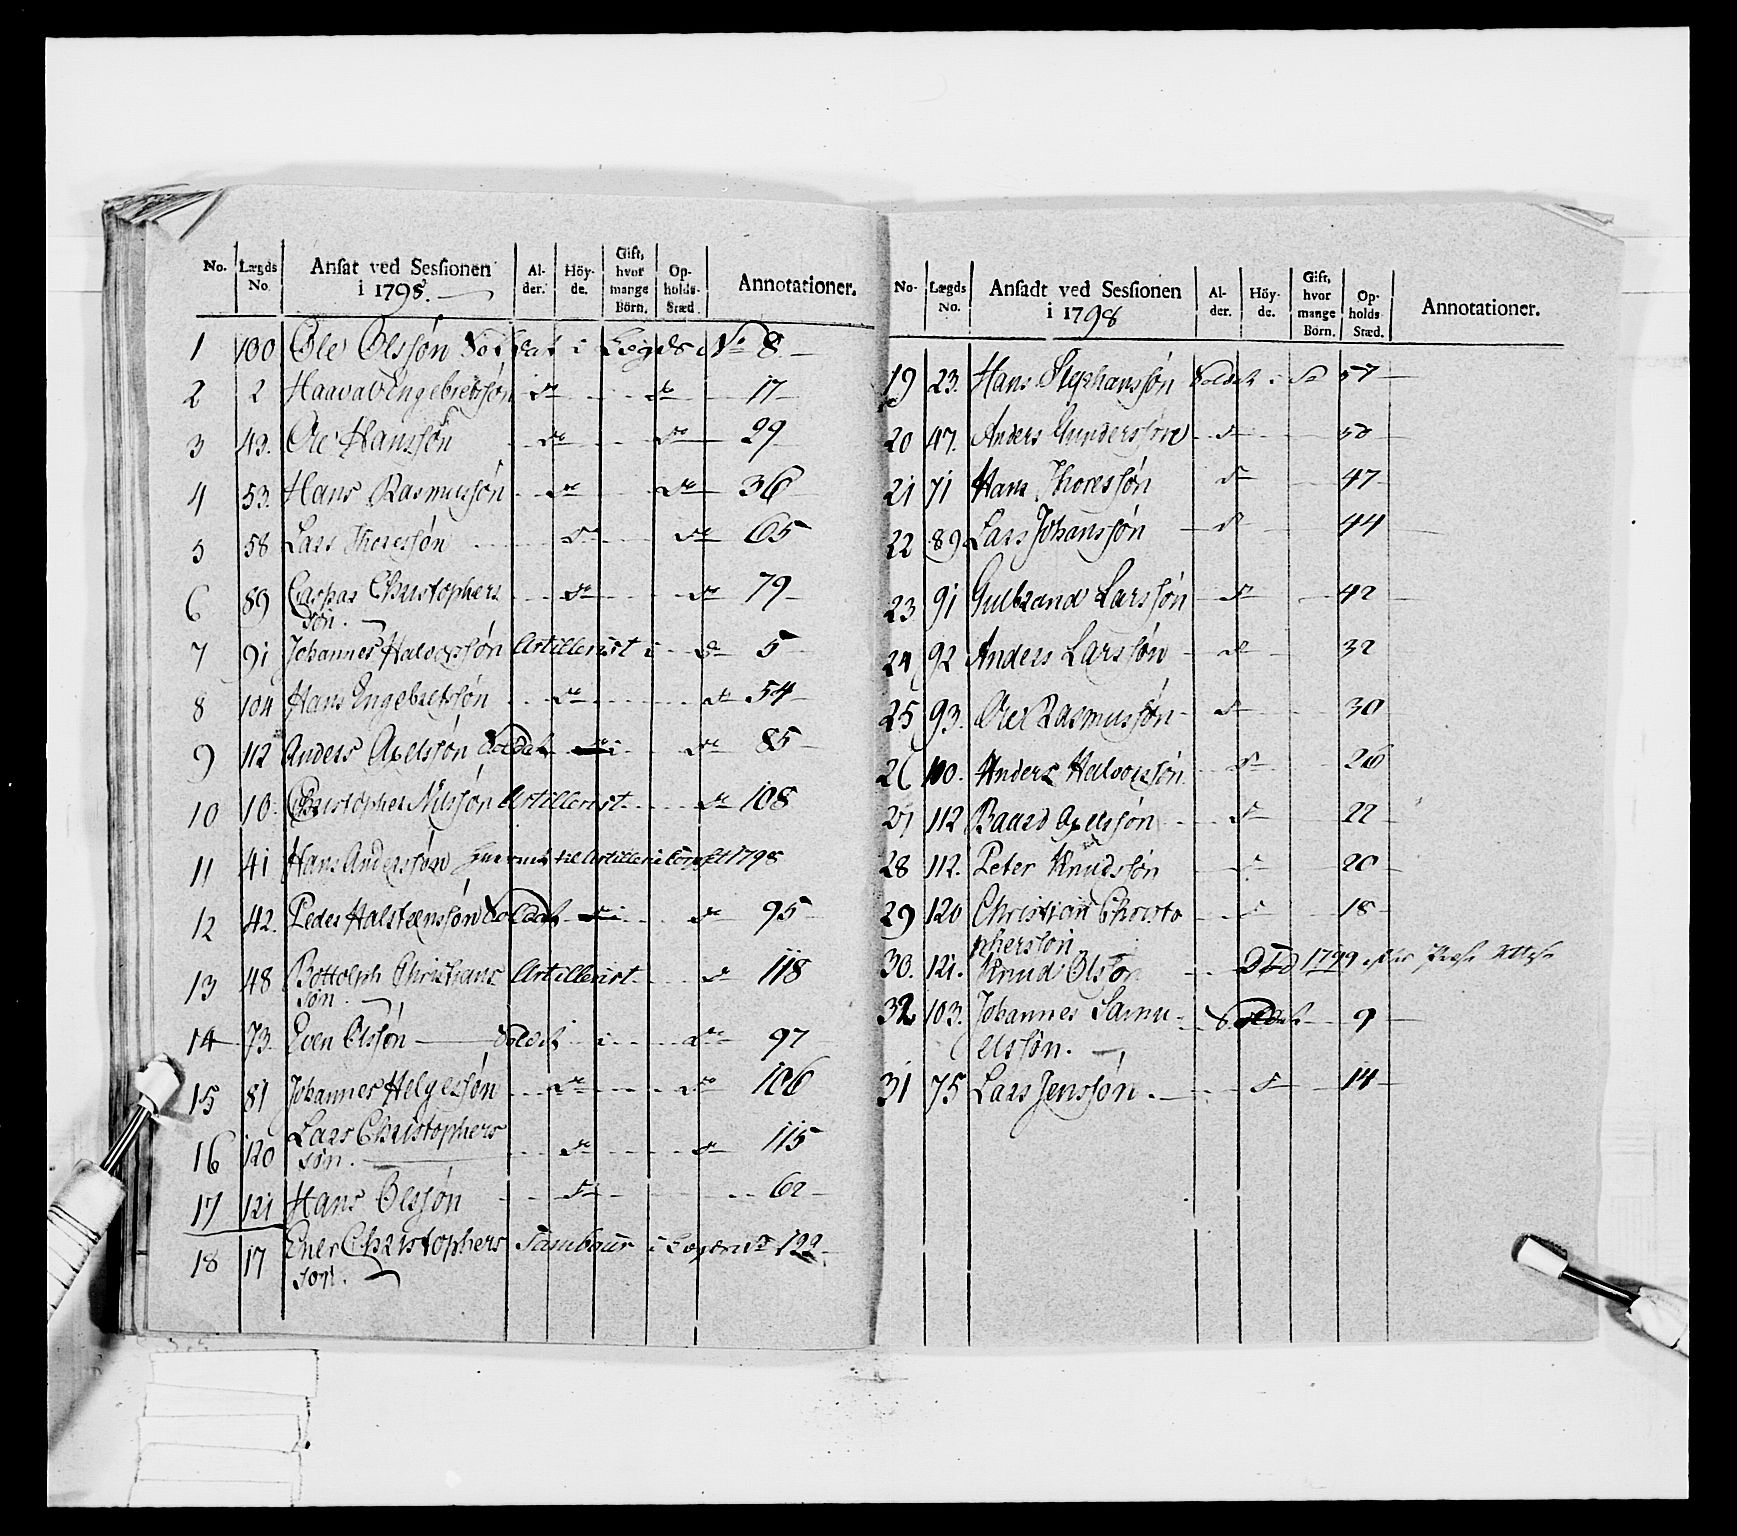 No. Lægds No. Ansat ved Sessionen i 1798. Al-der. Höy-de. Gift, hvor mange Börn. Op-holds-Stæd. Annotationer.
1 100 Ole Olssön Soldat i Lægds No 8
2 2 Haavav Engebretssön do do 17
3 43. Ole Hanssön do do 29
4 53. Hans Rasmussön do do 36
5 58 Lars Thoressön do do 65
6 89 Caspar Christophers do do 79
sön.
7 91 Johannes Halvorssön Artillerist i do 5
8 104 Hans Engebretssön do do 54
9 112 Anders Axelssön Soldat i do 85
10 10. Christopher Nilssön Artillerist do 108
11 41 Hans Anderssön til Artillerie 1798
12 42. Peder Halsteenssön Soldat i do 95
13 48 Bottolph Christians Artillerist do 118
sön.
14 73. Even Olssön Soldat i do 97
15 81 Johannes Helgessön do do 106
16 120 Lars Christophers do do 115
sön.
17 121 Hans Olssön do 62
18 17 Ener Christophers Tambour i No 122
sön.
No. Lægds No. Ansadt ved Sessionen i 1798 Al-der. Höy-de. Gift, hvor mange Börn. Op-holds-Stæd. Annotationer.
19 23. Hans Stephanssön Soldat i do 57
20 47. Anders Gunderssön do 50
21 71 Hans Thoressön do 47
22 89 Lars Johanssön do 44
23 91 Gulbrand Larssön do 42
24 92 Anders Larssön do 32
25 93. Ole Rasmussön do 30
26 100. Anders Halvorssön do 26
27 112 Baard Axelssön do 22
28 112. Peter Knudssön do 20
29 120 Christian Christo do 18
pherssön
30. 121. Knud Olssön Död 1799 efter
32 103. Johannes Samu Soldat 9
elssön.
31 75 Lars Jenssön. do 14